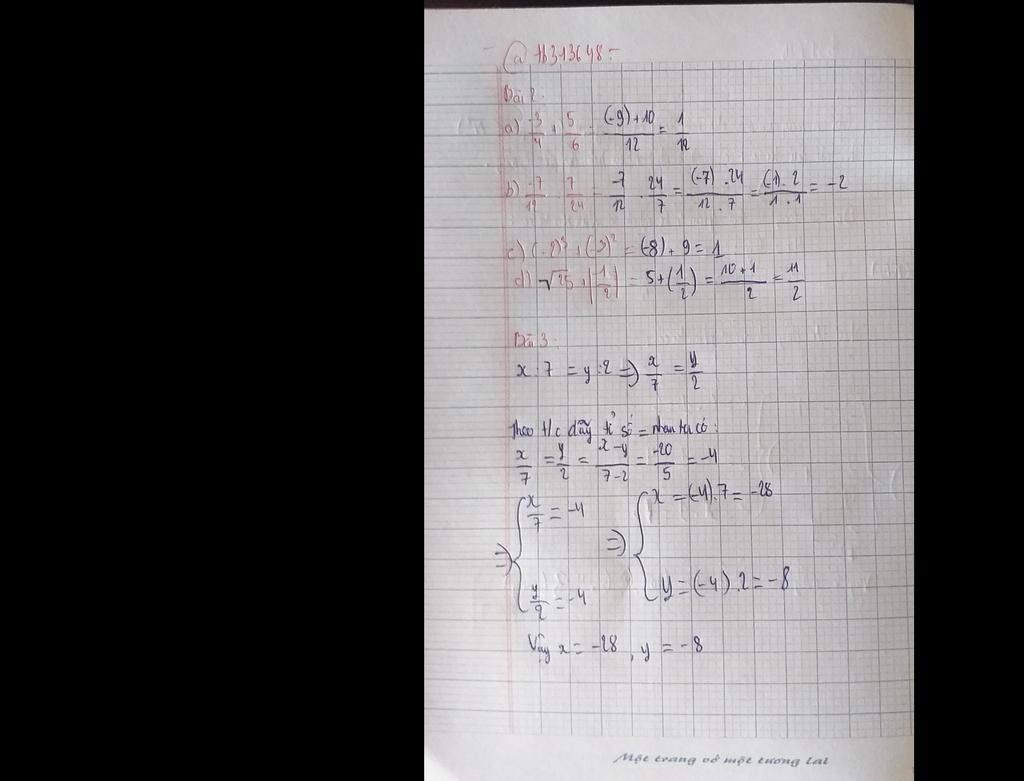 @ tb313648 -
Bài 2:
a) \frac{-3}{4} + \frac{5}{6} = \frac{(-9)+10}{12} = \frac{1}{12}
b) \frac{-7}{12} : \frac{7}{24} = \frac{-7}{12} . \frac{24}{7} = \frac{(-7) . 24}{12 . 7} = \frac{(-1) . 2}{1 . 1} = -2
c) (-2)³ + (-3)² = (-8) + 9 = 1
d) √25 + |\frac{1}{2}| = 5 + (\frac{1}{2}) = \frac{10+1}{2} = \frac{11}{2}
Bài 3:
x : 7 = y : 2 => \frac{x}{7} = \frac{y}{2}
theo t/c dãy tỉ số = nhau ta có:
\frac{x}{7} = \frac{y}{2} = \frac{x-y}{7-2} = \frac{-20}{5} = -4
=> { \frac{x}{7} = -4 => { x = (-4).7 = -28
\frac{y}{2} = -4 y = (-4).2 = -8
Vậy x = -28, y = -8
Một trang vở một tương lai